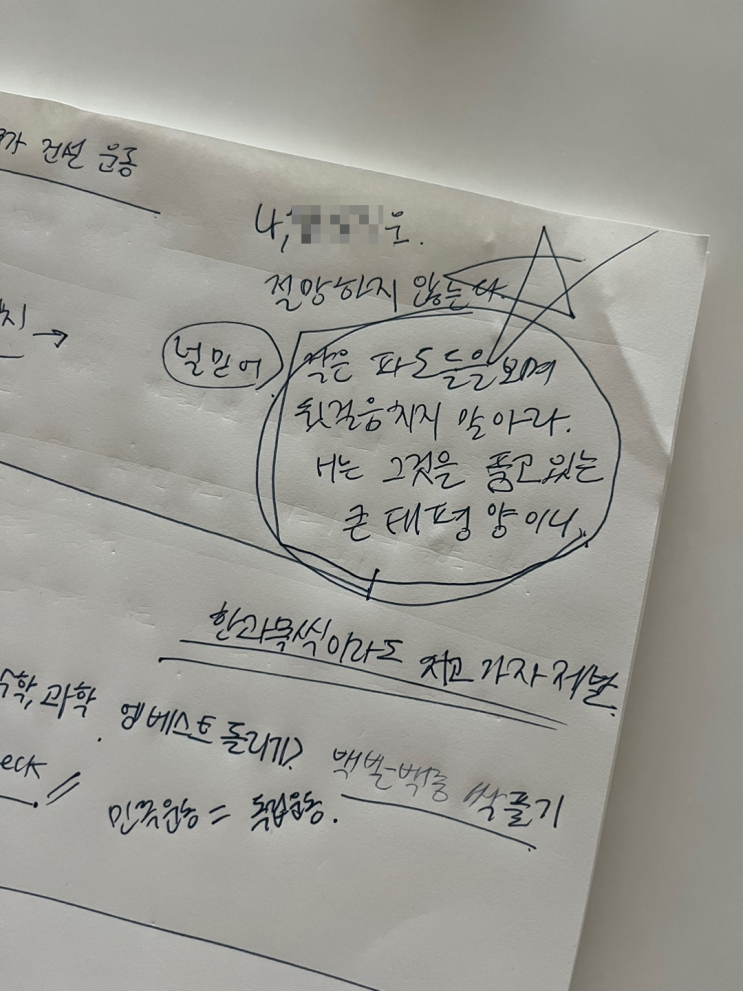 가 건설 운동
나, 은.
절망하지 않는다.
널 믿어
작은 파도들을 보며
뒷걸음치지 말아라.
너는 그것을 품고 있는
큰 태평양이니,
한 과목씩이라도 치고 가자 제발.
수학, 과학. 엠베스트 돌리기?
eck
백벌-백중 싹 풀기
민족운동 = 독립운동.